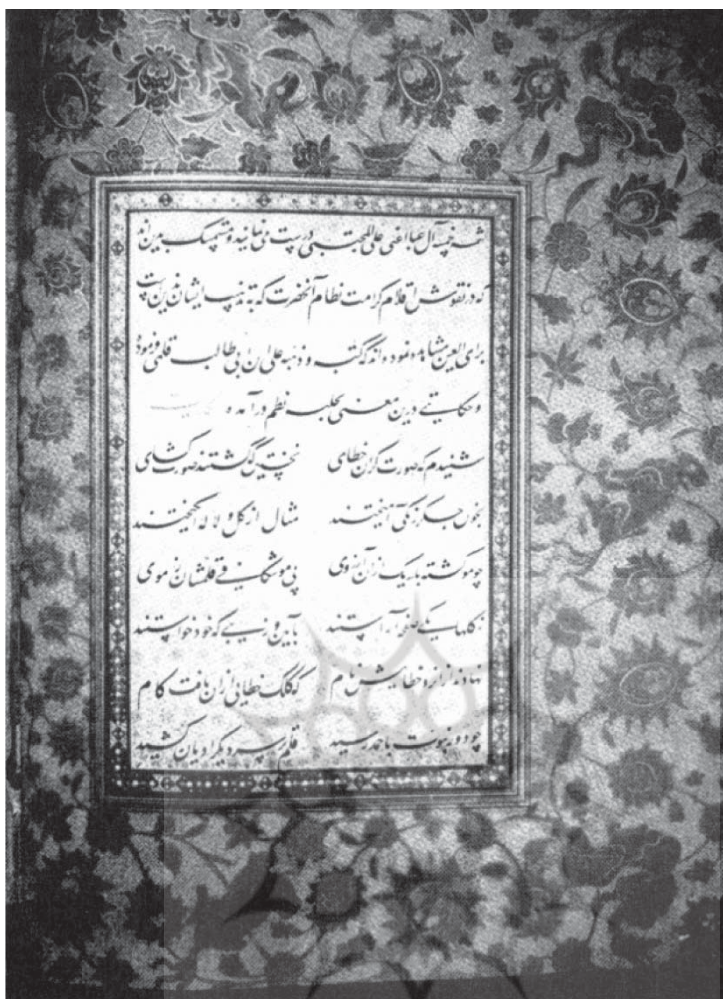 خمسه آل عبا اعنی علی المجتبی درست می‌نمایند و متمسک بدین‌اند
که در نقوش اقلام کرامت نظام آنحضرت که به تذهیب ایشان تزیین یافته
برای العین مشاهده نموده‌اند که کتبه و ذهبه علی ابن ابی طالب قلمی فرموده
و حکایتی درین معنی بحلیه نظم در آمده
شنیدم که صورت گران خطای نخستین که گشتند صورت گشای
بخون جگر رنگی آمیختند مثال از گل و لاله انگیختند
چو مو گشته باریک ازان آرزوی پی مو شکافی قلمشان ز موی
ز گلها یکی صفحه آراستند بآیین و زیبی که خود خواستند
نهادند ازانرو خطاییش نام که کلک خطایی ازان یافت کام
چو دور نبوت باحمد رسید قلم بر سر دیگر ادیان کشید